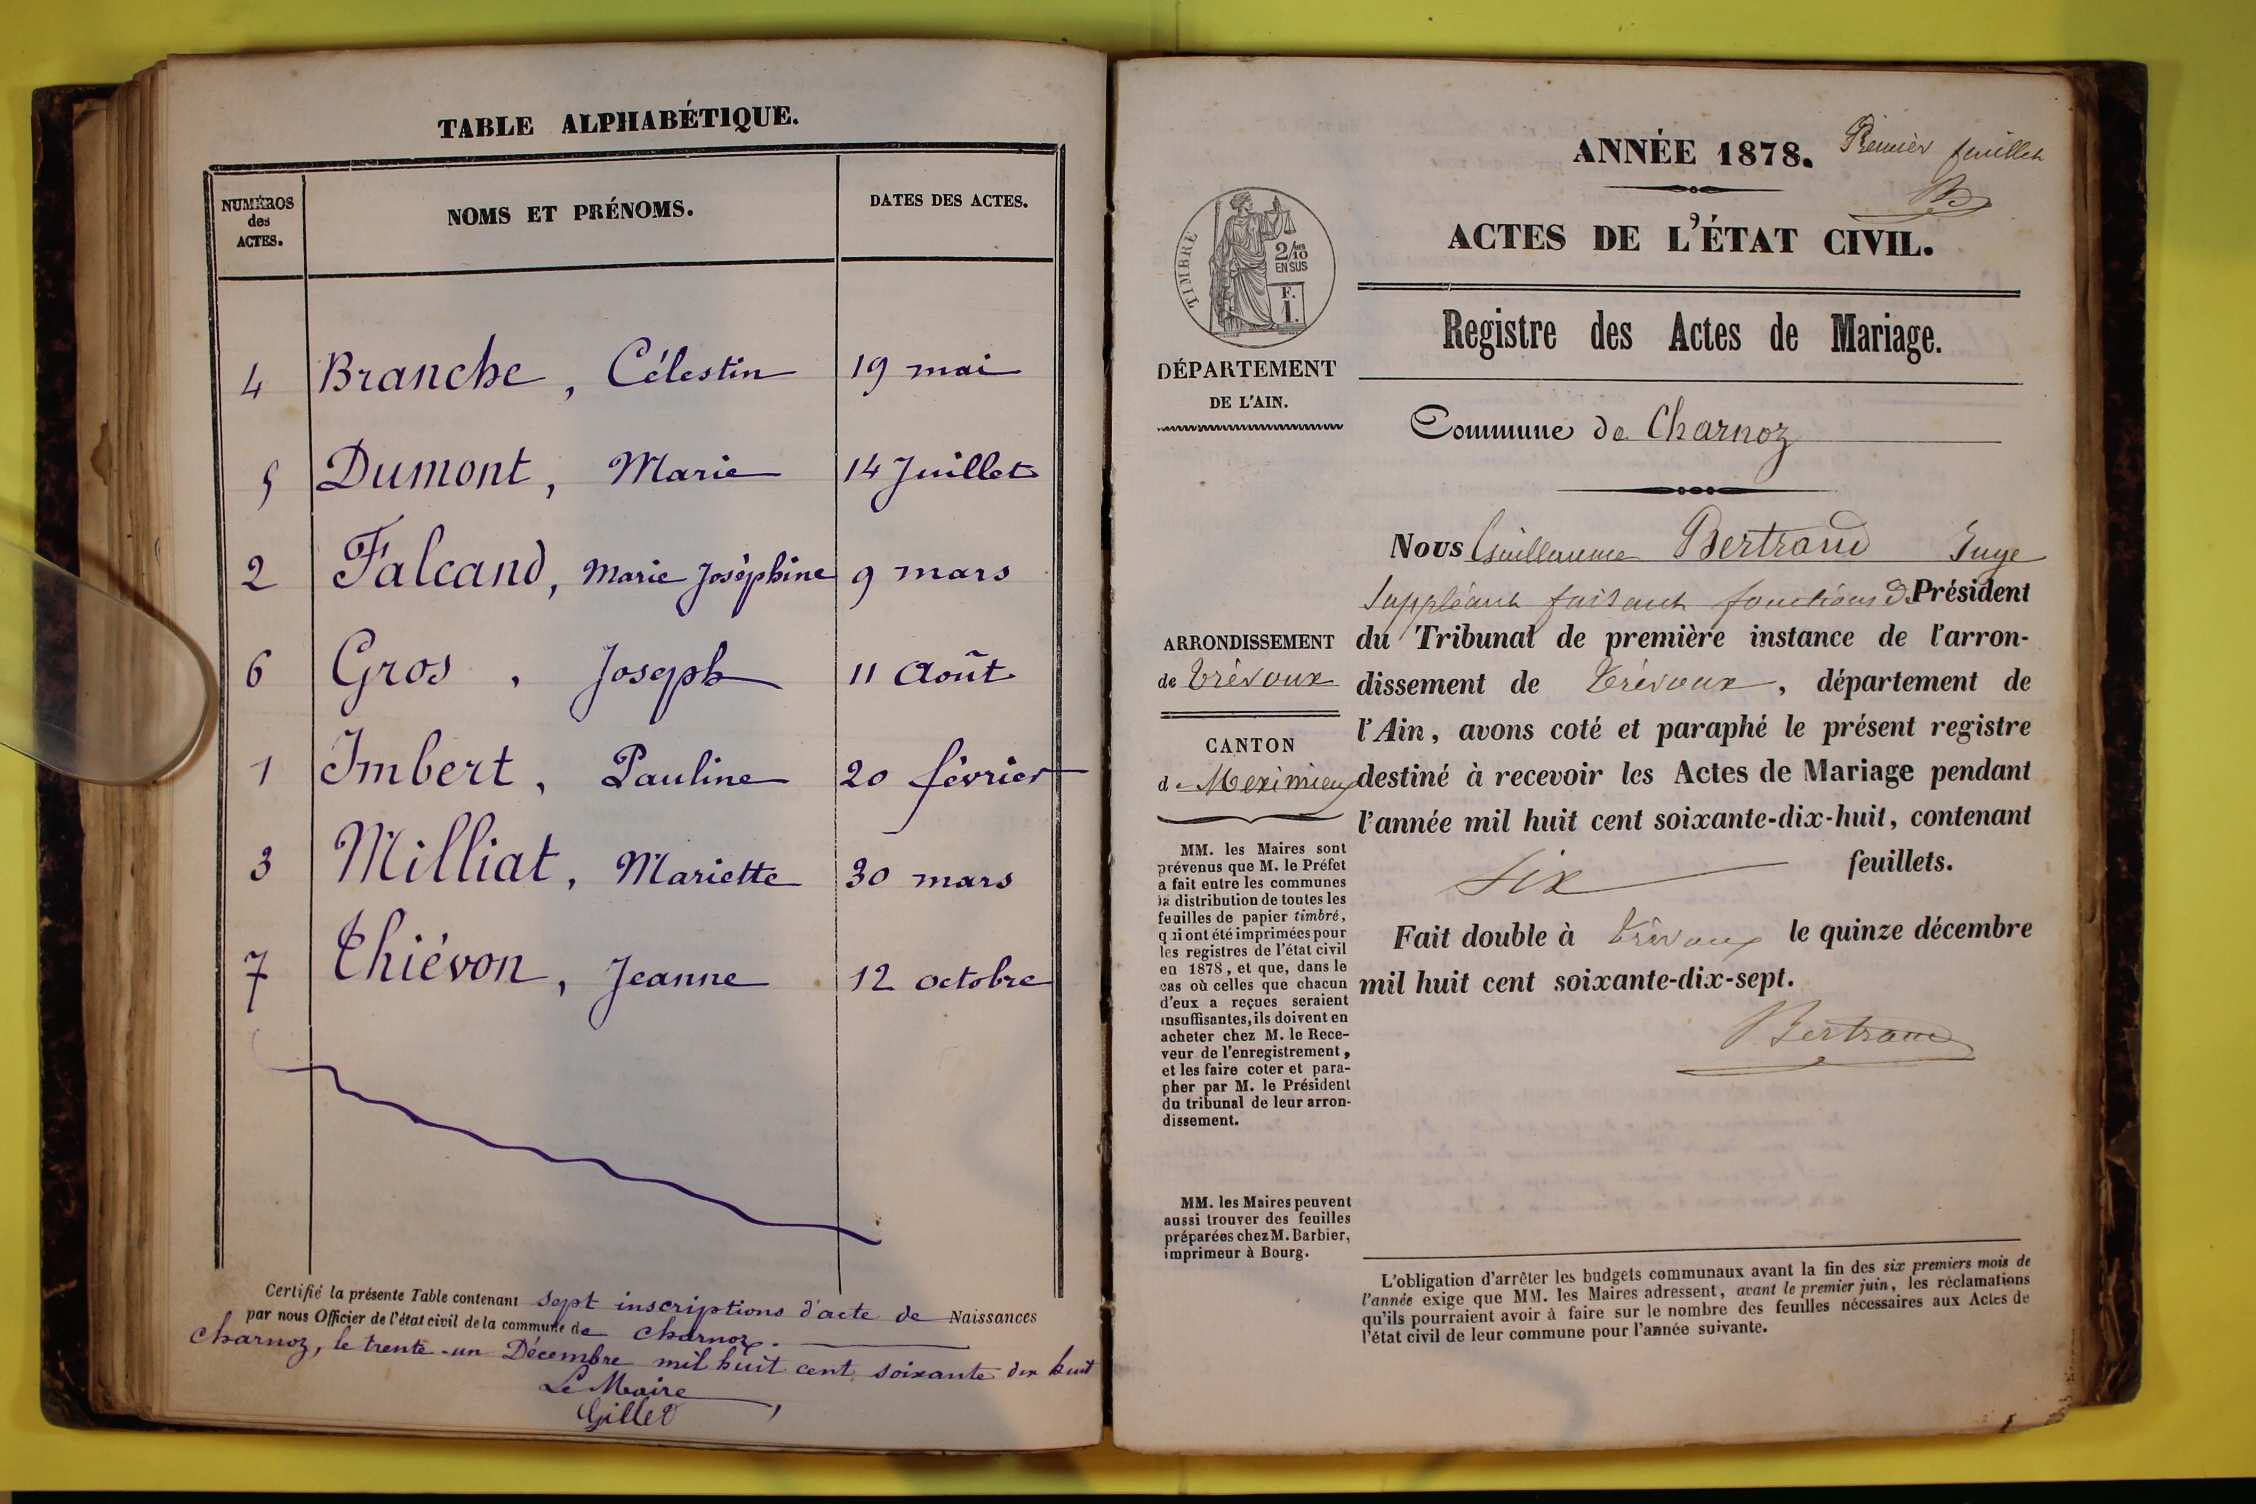 TABLE ALPHABÉTIQUE.
NUMÉROS
des
ACTES.
NOMS ET PRÉNOMS.
DATES DES ACTES.
4 Branche, Célestin 19 mai
5 Dumont, Marie 14 Juillet
2 Falcand, Marie Joséphine 9 mars
6 Gros, Joseph 11 Août
1 Imbert, Pauline 20 février
3 Milliat, Mariette 30 mars
7 Thiévon, Jeanne 12 octobre
Certifié la présente Table contenant sept inscriptions d'acte de Naissances
par nous Officier de l'état civil de la commune de Charnoz.
Charnoz, le trente-un Décembre mil huit cent soixante dix huit
Le Maire
Gillet
ANNÉE 1878.
Premier feuillet
B
ACTES DE L'ÉTAT CIVIL.
TIMBRE
2/10
EN SUS
F.
1.
Registre des Actes de Mariage.
DÉPARTEMENT
DE L'AIN.
Commune de Charnoz
ARRONDISSEMENT
de Trévoux
CANTON
de Meximieux
MM. les Maires sont
prévenus que M. le Préfet
a fait entre les communes
la distribution de toutes les
feuilles de papier timbré,
qui ont été imprimées pour
les registres de l'état civil
en 1878, et que, dans le
cas où celles que chacun
d'eux a reçues seraient
insuffisantes, ils doivent en
acheter chez M. le Rece-
veur de l'enregistrement,
et les faire coter et para-
pher par M. le Président
du tribunal de leur arron-
dissement.
MM. les Maires peuvent
aussi trouver des feuilles
préparées chez M. Barbier,
imprimeur à Bourg.
Nous Guillaume Bertrand Juge
Suppléant faisant fonctions de Président
du Tribunal de première instance de l'arron-
dissement de Trévoux, département de
l'Ain, avons coté et paraphé le présent registre
destiné à recevoir les Actes de Mariage pendant
l'année mil huit cent soixante-dix-huit, contenant
six feuillets.
Fait double à Trévoux le quinze décembre
mil huit cent soixante-dix-sept.
Bertrand
L'obligation d'arrêter les budgets communaux avant la fin des six premiers mois de
l'année exige que MM. les Maires adressent, avant le premier juin, les réclamations
qu'ils pourraient avoir à faire sur le nombre des feuilles nécessaires aux Actes de
l'état civil de leur commune pour l'année suivante.